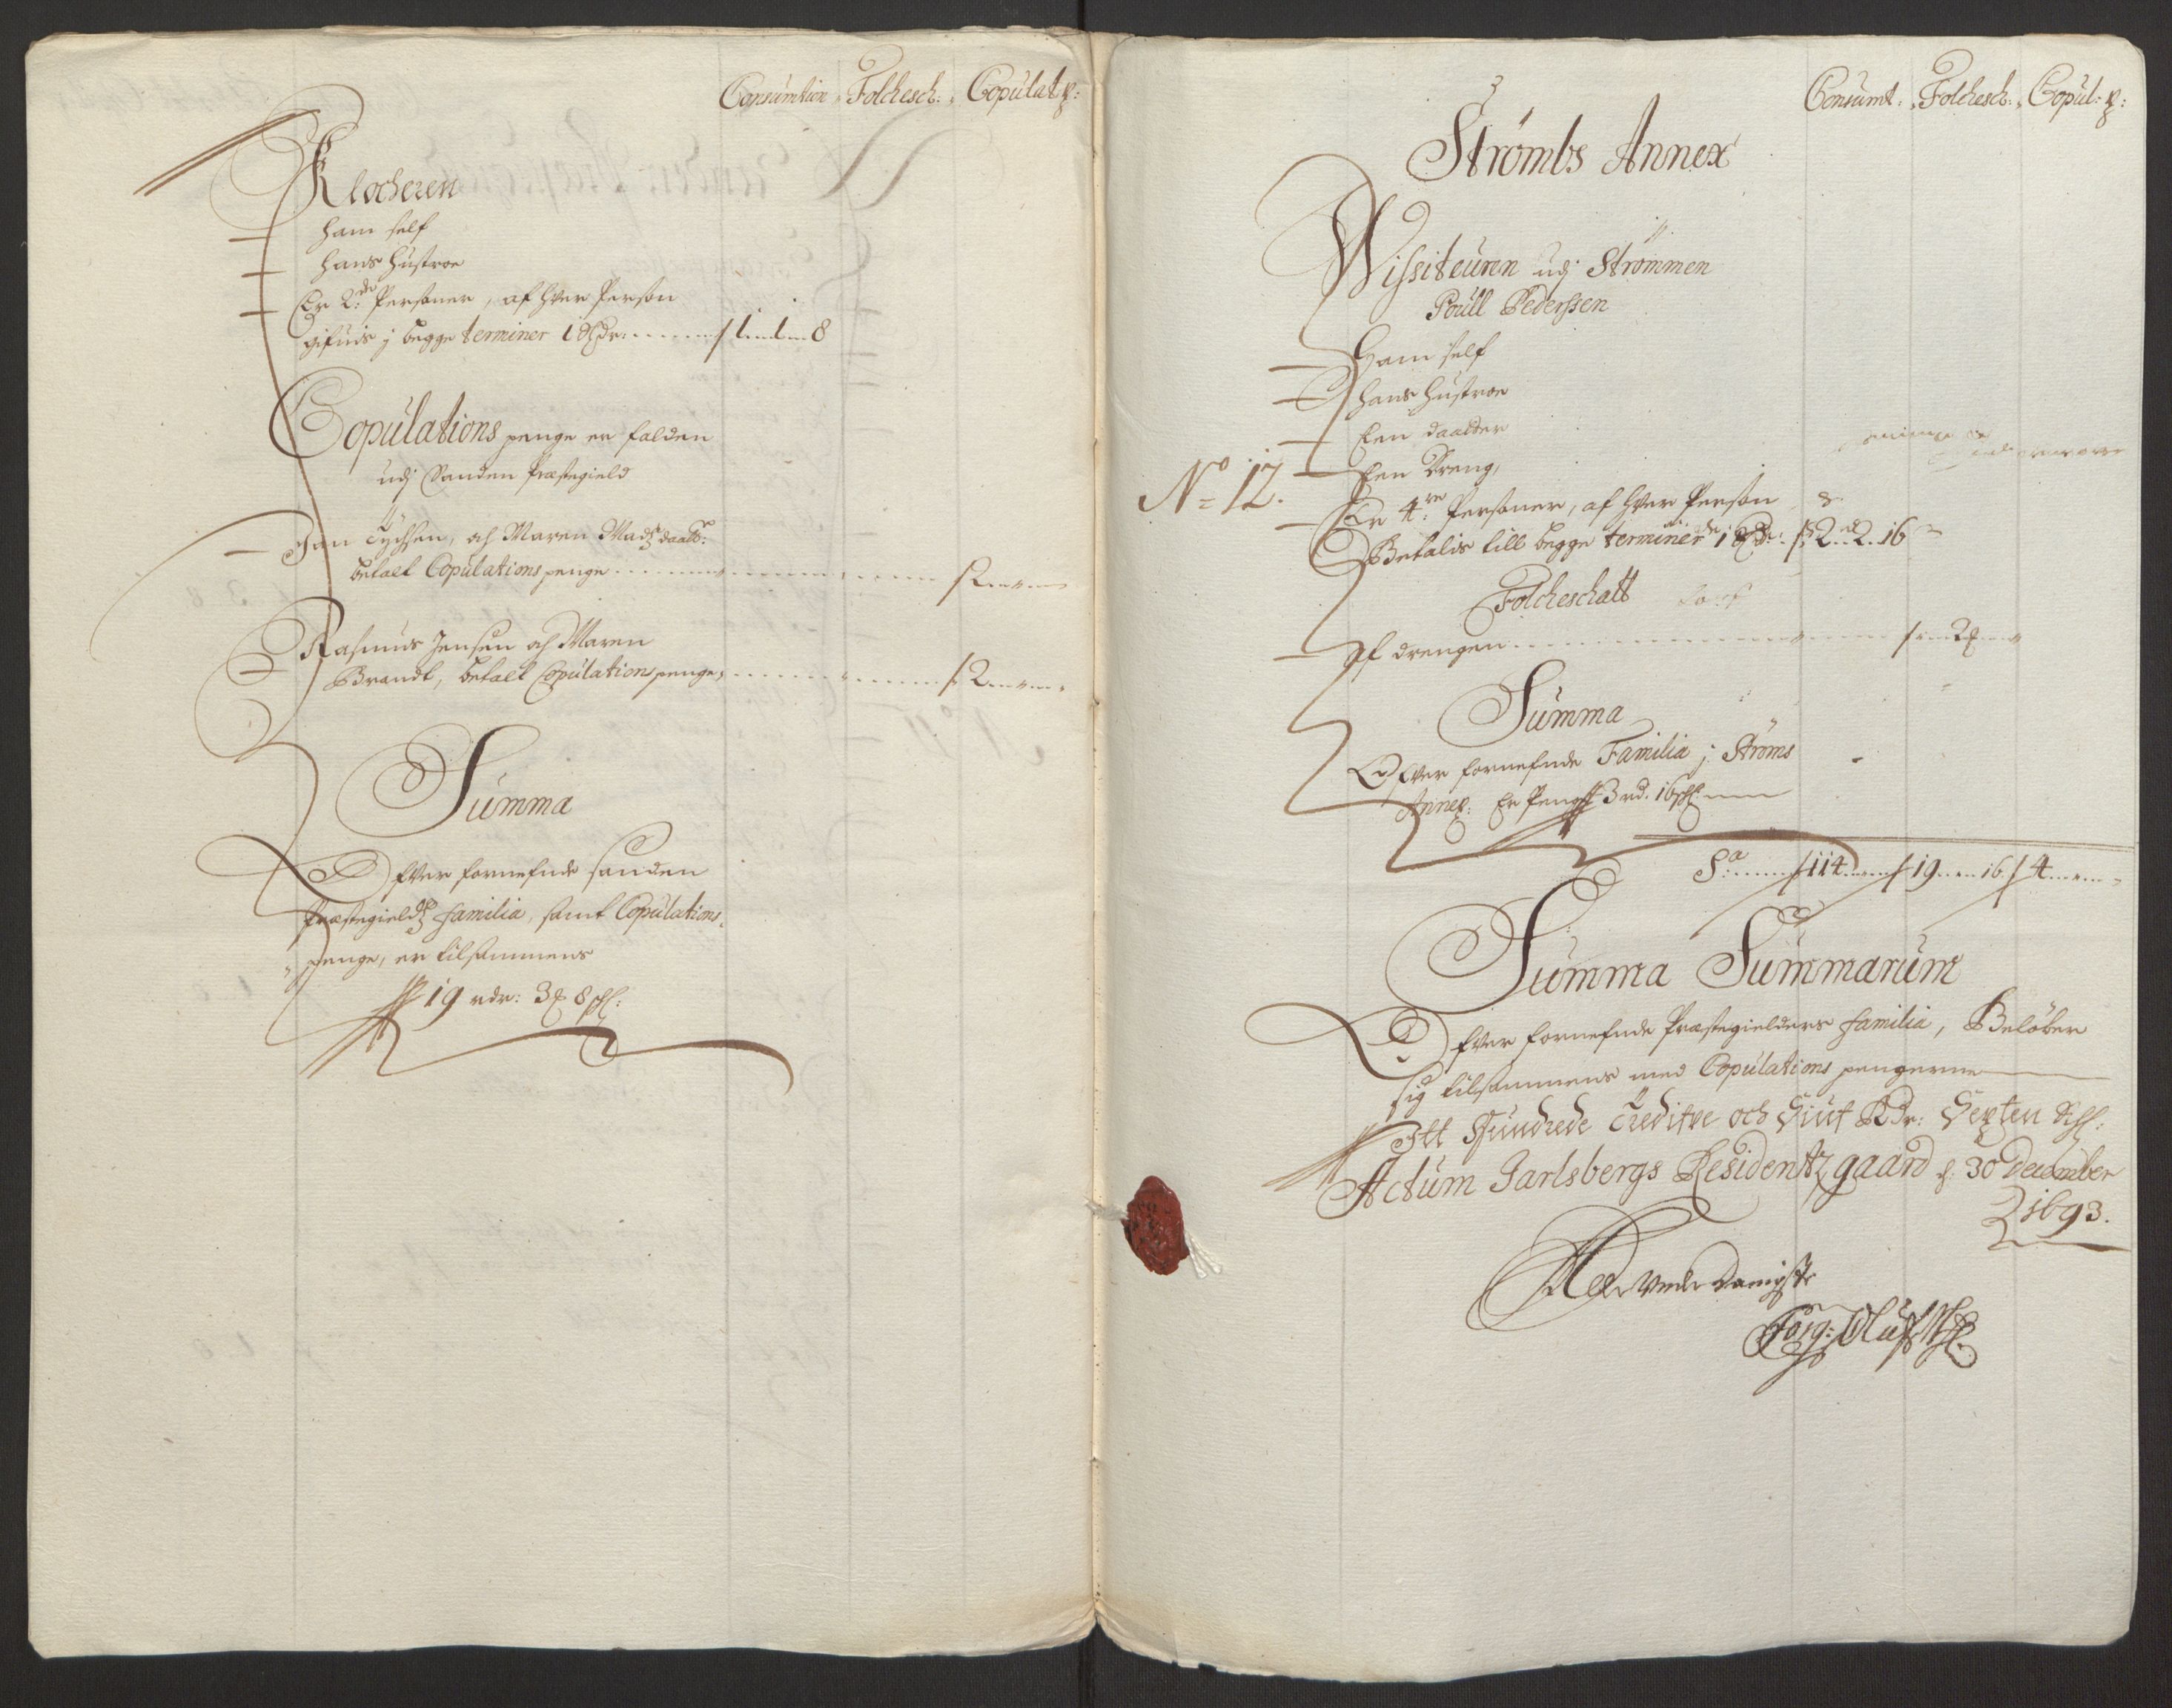 Consumtion Folchesch: Copulat p:
Klocheren
ham self
hans hustroe
Er 2de Personer, af hver Person
gifuis j begge terminer 1 ... 1 .. 1 .. 8
Copulations penge er falden
udj Sanden Præstegield
Jan Tychsen, och Maren Madz daatter:
betalt Copulations penge 2
Rasmus Jensen och Maren
Brandt, betalt Copulations penge 2
Summa
Ofver fornefnde Sanden
Præstegieldz familia, samt Copulations
penge, er tilsammens
19 rdr: 3 8 sh:
Consumt: Folchesch: Copul: p:
Strømbs Annex
Wissiteuren udj Strømmen
Poull Pederssen
Ham self
hans hustroe
Een daatter
Een Dreng,
No 12.
Er 4re Personer, af hver Person
Betalis till begge terminer 2 .. 2 .. 16
Folcheschatt
Af drengen
Summa
Ofver fornefnde Familia j Strøms
Annex: Er Penge 3 rd. 16 sh
Sa 114 19 16 4
Summa Summarum
Ofver fornefnde Præstegielders familia, Beløber
sig tilsammens med Copulations pengerne
Itt Hundrede Tredifve och Siuf Rdr: Sexten Sh:
Actum Jarlsbergs Residentz gaard d: 30 December
1693.